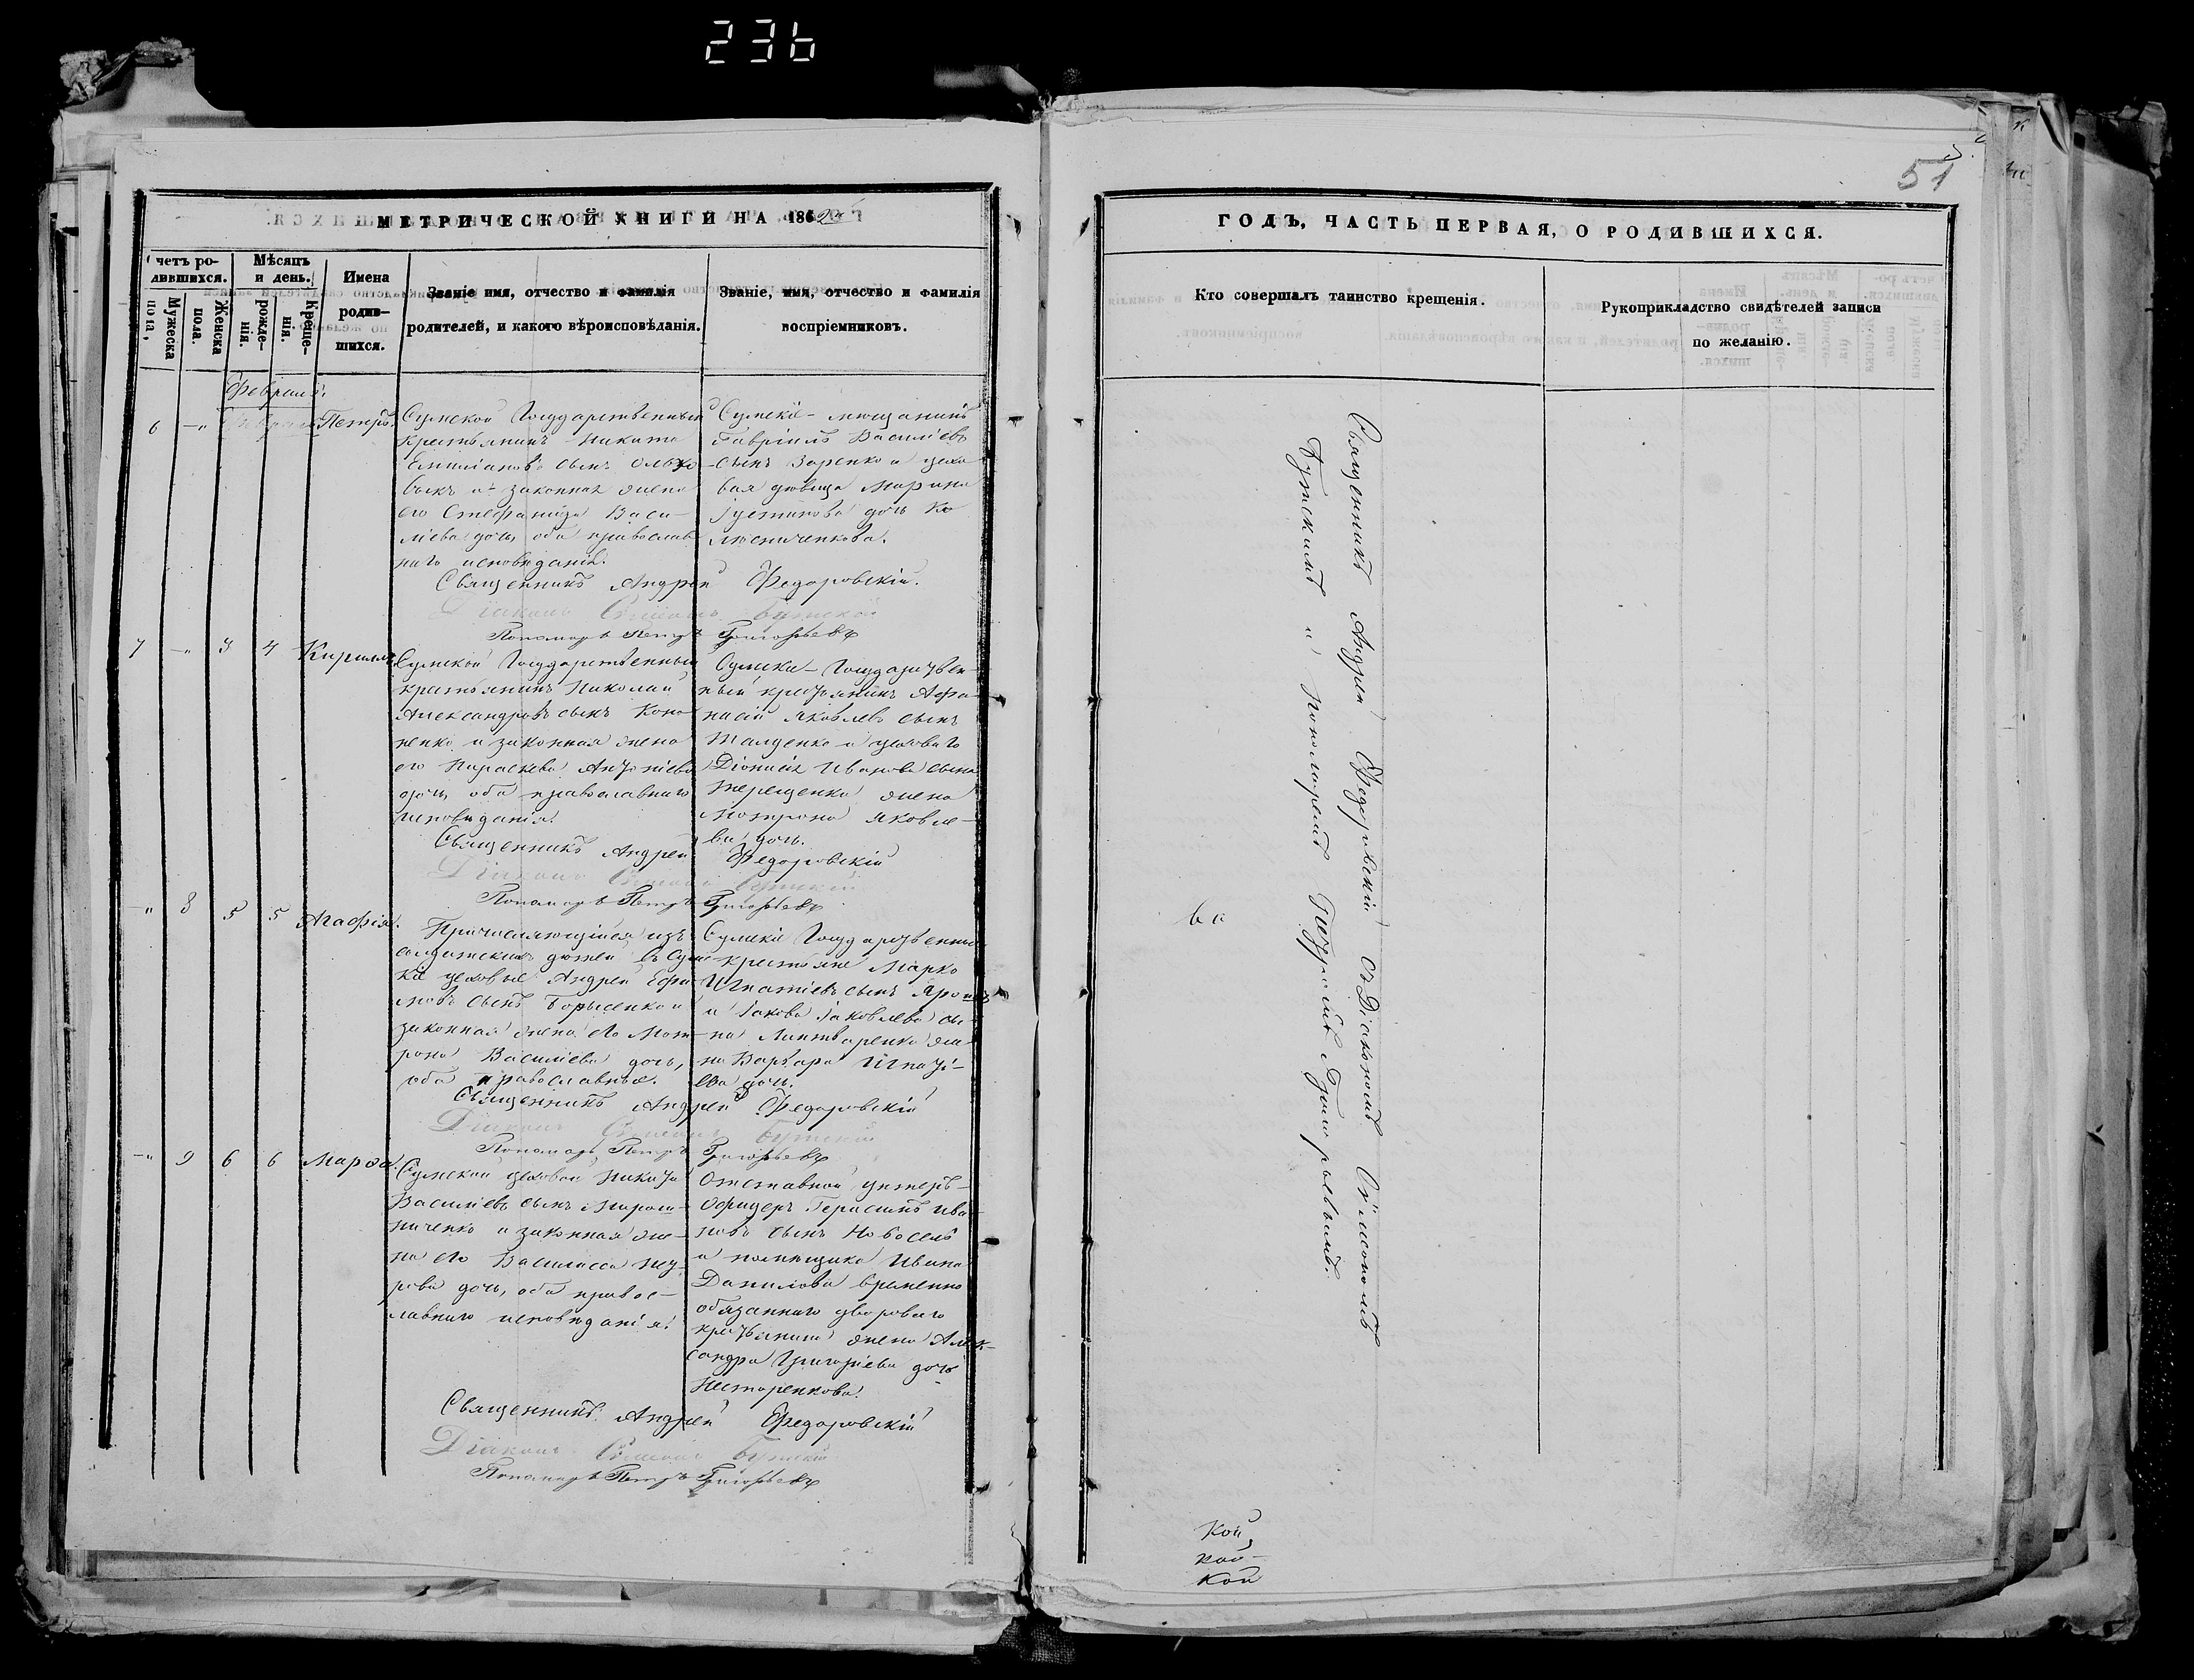 236
51
МЕТРИЧЕСКОЙ КНИГИ НА 1862
ГОДЪ, ЧАСТЬ ПЕРВАЯ, О РОДИВШИХСЯ.
Счетъ ро-
дившихся.
Мужеска
пола,
Женска
пола.
Мѣсяцъ
и день.
рожде-
нія.
Креще-
нія.
Имена
родив-
шихся.
Званіе имя, отчество и фамилія
родителей, и какого вѣроисповѣданія.
Званіе, имя, отчество и фамилія
воспріемниковъ.
Кто совершалъ таинство крещенія.
Рукоприкладство свидѣтелей записи
по желанію.
Февраля.
6 Петръ.
Сумской Государственный
крестьянинъ Никита
Емиліановъ сынъ
и законная жена
его Стефанида Васи-
ліева дочь, оба православ
наго исповѣданія.
Сумскіе мѣщанинъ
Гавріилъ Василіевъ
сынъ Заренко и цехо
вая дѣвица Марина
Іустинова дочь Ко
Священникъ Андрей Федоровскій.
Діаконъ Симонъ
Пономарь Петръ Григорьевъ
7 3 4 Кириллъ
Сумской Государственный
крестьянинъ Николай
Александровъ сынъ Коно
ненко и законная жена
его Параскева Антоніева
дочь, оба православнаго
исповѣданія.
Сумскіе Государствен-
ный крестьянинъ Афа-
насій Яковлевъ сынъ
и цеховаго
Діонисія Иванова сына
Терещенка жена
Мотрона Яковле-
ва дочь.
Священникъ Андрей Федоровскій
Діаконъ Симонъ
Пономарь Петръ Григорьевъ
8 5 5 Агафія.
Причисляющійся изъ
солдатскихъ дѣтей въ Сум
скіе цеховые Андрей Ефи
мовъ сынъ Борысенко и
законная жена его Мот
рона Василіева дочь,
оба православные.
Сумскіе Государственные
крестьяне Марко
Игнатіевъ сынъ
и Іакова Іаковлева сы-
на Литваренка же
на Варвара Игнаті-
ева дочь.
Священникъ Андрей Федоровскій
Діаконъ Симонъ
Пономарь Петръ Григорьевъ
9 6 6 Марфа.
Сумской цеховой Никита
Василіевъ сынъ Мирош-
ниченко и законная же-
на его Василисса
рова дочь, оба правос-
лавнаго исповѣданія.
Отставной унтеръ-
Офицеръ Герасимъ Ива
новъ сынъ Новоселъ
и помѣщика Ивана
Данилова временно
обязаннаго двороваго
крестьянина жена Алек-
сандра Григоріева дочь
Нестеренкова.
Священникъ Андрей Федоровскій
Діаконъ Симонъ
Пономарь Петръ Григорьевъ
Священникъ Андрей Федоровскій съ Діакономъ Симономъ
и пономаремъ Петромъ Григорьевымъ.
ва
кой,
кой-
кой